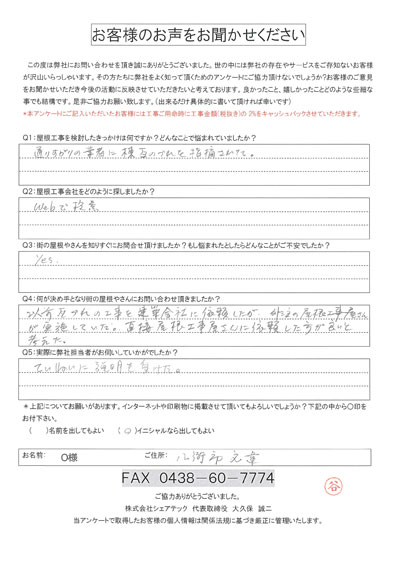 お客様のお声をお聞かせください
この度は弊社にお問い合わせを頂き誠にありがとうございました。世の中には弊社の存在やサービスをご存知ないお客様
が沢山いらっしゃいます。その方たちに弊社をよく知って頂くためのアンケートにご協力頂けないでしょうか?お客様のご意見
をお聞かせいただき今後の活動に反映させていただきたいと考えております。良かったこと、嬉しかったことどのような些細な
事でも結構です。是非ご協力お願い致します。(出来るだけ具体的に書いて頂ければ幸いです)
*本アンケートにご記入いただいたお客様には工事ご用命時に工事金額(税抜き)の 3%をキャッシュバックさせていただきます。
Q1:屋根工事を検討したきっかけは何ですか?どんなことで悩まれていましたか?
通りすがりの業者に棟瓦のずれを指摘されて。
Q2:屋根工事会社をどのように探しましたか?
Webで検索
Q3:街の屋根やさんを知りすぐにお問合せ頂けましたか?もし悩まれたとしたらどんなことがご不安でしたか?
Yes.
Q4:何が決め手となり街の屋根やさんにお問い合わせ頂きましたか?
以前瓦ずれの工事を建築会社に依頼したが、外注の屋根工事屋さん
が実施していた。直接屋根工事屋さんに依頼した方が良いと
考えた。
Q5:実際に弊社担当者がお伺いしていかがでしたか?
ていねいに説明を受けた。
*上記についてお願いがあります。インターネットや印刷物に掲載させて頂いてもよろしいでしょうか?下記の中から〇印を
お付下さい。
( )名前を出してもよい ( ○ )イニシャルなら出してもよい
お名前: O様 ご住所: 八街市文違
FAX 0438-60-7774
谷
ご協力ありがとうございました。
株式会社シェアテック 代表取締役 大久保 誠二
当アンケートで取得したお客様の個人情報は関係法規に基づき厳正に管理いたします。